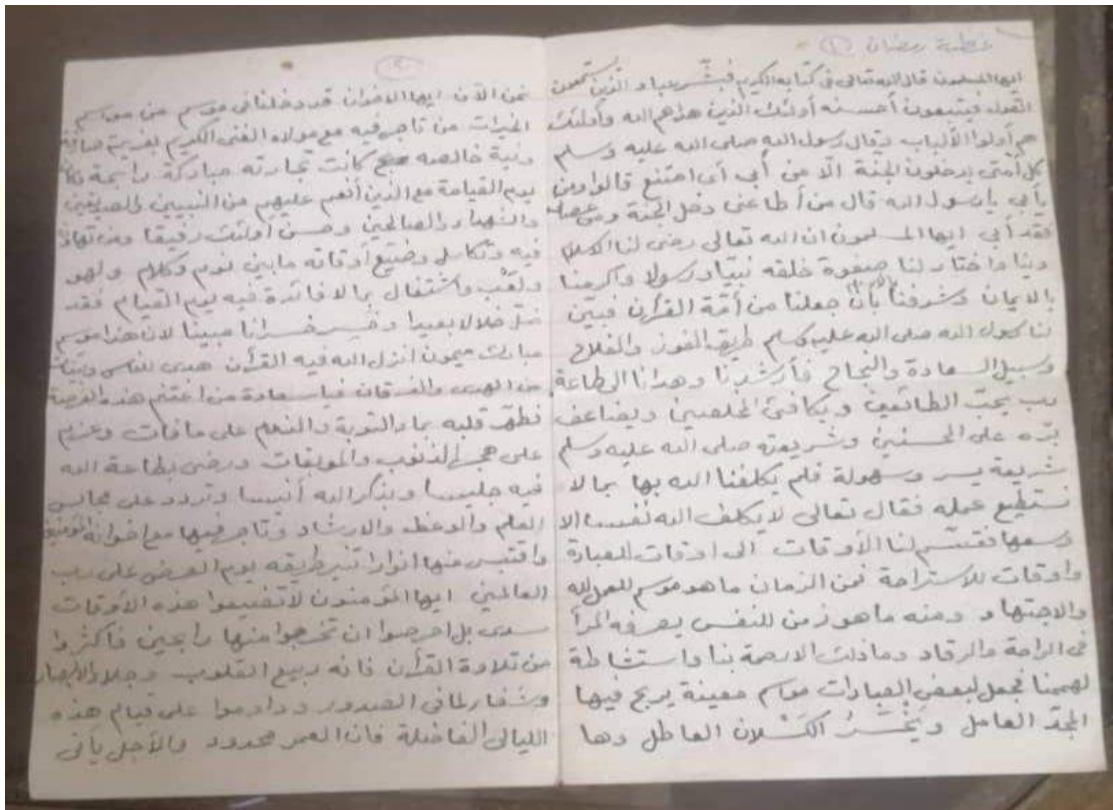 خطبة رمضان (١)
ايها المسلمون قال الله تعالى في كتابه الكريم فبشّر عباد الذين يستمعون
القول فيتبعون أحسنه أولئك الذين هداهم الله وأولئك
هم أولوا الألباب وقال رسول الله صلى الله عليه وسلم
كل أمتي يدخلون الجنة الّا من أبى أى امتنع قالوا ومن
يأبى يا رسول الله قال من أطاعنى دخل الجنة ومن عصانى
فقد أبى ايها المسلمون ان الله تعالى رضى لنا الاسلام
دينا واختار لنا صفوة خلقه نبيّا ورسولا وأكرمنا
بالايمان وشرفنا بأن جعلنا من أمّة القرآن فبيّن
لنا رسول الله صلى الله عليه وسلم طريق الفوز والفلاح
وسبيل السعادة والنجاح فأرشدنا وهدانا الى طاعة
رب يحبّ الطائعين ويكافئ المخلصين ويضاعف
برّه على المحسنين وشريعته صلى الله عليه وسلم
شريعة يسر وسهولة فلم يكلفنا الله بها بما لا
نستطيع عمله فقال تعالى لا يكلف الله نفسا الا
وسعها فقسّم لنا الأوقات الى اوقات للعبادة
واوقات للاستراحة فمن الزمان ما هو موسم للعمل لله
والاجتهاد ومنه ما هو زمن للنفس يصرفه المرأ
فى الراحة والرقاد وماذلك الا رحمة بنا واستنشاطة
لهممنا فجعل لبعض العبادات مواسم معينة يربح فيها
المجدّ العامل ويَخْسَرُ الكَسْلان العاطل وها
(٢)
نحن الآن ايها الاخوان قد دخلنا فى موسم من مواسم
الخيرات من تاجر فيه مع مولاه الغنى الكريم بعزيمة صادقة
ونية خالصة كانت تجارته مباركة رابحة
يوم القيامة مع الذين أنعم عليهم من النبيين والصديقين
والشهداء والصالحين وحسن أولئك رفيقا ومن تهاون
فيه وتكاسل وضيع أوقاته ما بين نوم وكلام ولهو
ولعْب واشتغال بما لا فائدة فيه يوم القيام فقد
ضلّ ضلالا بعيدا وخسر خسرانا مبينا لان هذا موسم
مبارك ميمون انزل الله فيه القرآن هدى للناس وبينات
من الهدى والفرقان فيا سعادة من اغتنم هذه الفرصة
فطهّر قلبه بماء التوبة والندم على ما فات وعزم
على هجر الذنوب والموبقات ورضى بطاعة الله
فيه جليسا وبذكر الله أنيسا وتردد على مجالس
العلم والوعظ والارشاد وتاجر فيها مع اخوانه المؤمنين
واقتبس منها انوارا تنير طريقه يوم العرض على رب
العالمين ايها المؤمنون لا تضيعوا هذه الأوقات
سدى بل احرصوا ان تخرجوا منها رابحين فأكثروا
من تلاوة القرآن فانه ربيع القلوب وجلاء الأبصار
وشفاء لما فى الصدور وداوموا على قيام هذه
الليالى الفاضلة فان العمر محدود والأجل يأتى